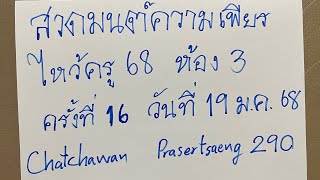 สวงามนต์ความเพียร
ไหว้ครู 68 ห้อง 3
ครั้งที่ 16 วันที่ 19 ม.ค. 68
Chatchawan Prasertsaeng 290